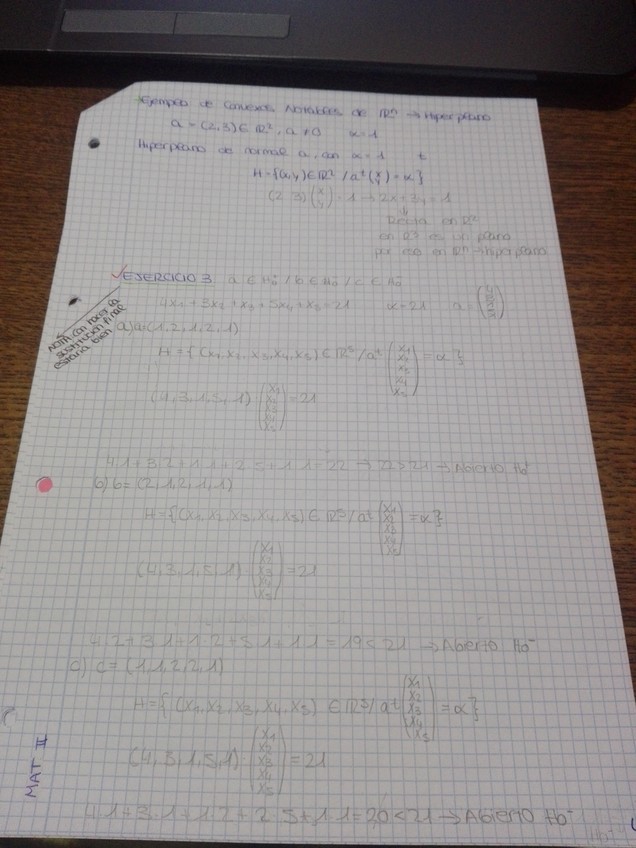 Ejemplo de convexos Notables de ℝⁿ → Hiperplano
a = (2,3) ∈ ℝ², a ≠ 0 α = 1
Hiperplano de normal a, con α = 1 t
H = {(x,y) ∈ ℝ² / aᵗ (x y) = α}
(2 3) (x y) = 1 → 2x + 3y = 1
Recta en ℝ²
en ℝ³ es un plano
por eso en ℝⁿ → hiperplano
EJERCICIO 3 a ∈ / b ∈ / c ∈
4x₁ + 3x₂ + x₃ + 5x₄ + x₅ = 21 α = 21 a =
NOTA: con hacer la
sustitución final
estaría bien
a) a = (1,2,1,2,1)
H = { (x₁, x₂, x₃, x₄, x₅) ∈ ℝ⁵ / aᵗ (x₁ x₂ x₃ x₄ x₅) = α }
(4,3,1,5,1) · (x₁ x₂ x₃ x₄ x₅) = 21
4·1 + 3·2 + 1·1 + 2·5 + 1·1 = 22 → 22 > 21 → Abierto Hb⁺
b) b = (2,1,2,1,1)
H = {(x₁, x₂, x₃, x₄, x₅) ∈ ℝ⁵ / aᵗ (x₁ x₂ x₃ x₄ x₅) = α}
(4,3,1,5,1) · (x₁ x₂ x₃ x₄ x₅) = 21
4·2 + 3·1 + 1·2 + 5·1 + 1·1 = 19 < 21 → Abierto Hb⁻
c) c = (1,1,2,2,1)
H = { (x₁, x₂, x₃, x₄, x₅) ∈ ℝ⁵ / aᵗ (x₁ x₂ x₃ x₄ x₅) = α }
(4,3,1,5,1) · (x₁ x₂ x₃ x₄ x₅) = 21
4·1 + 3·1 + 1·2 + 2·5 + 1·1 = 20 < 21 → Abierto Hb⁻
MAT II